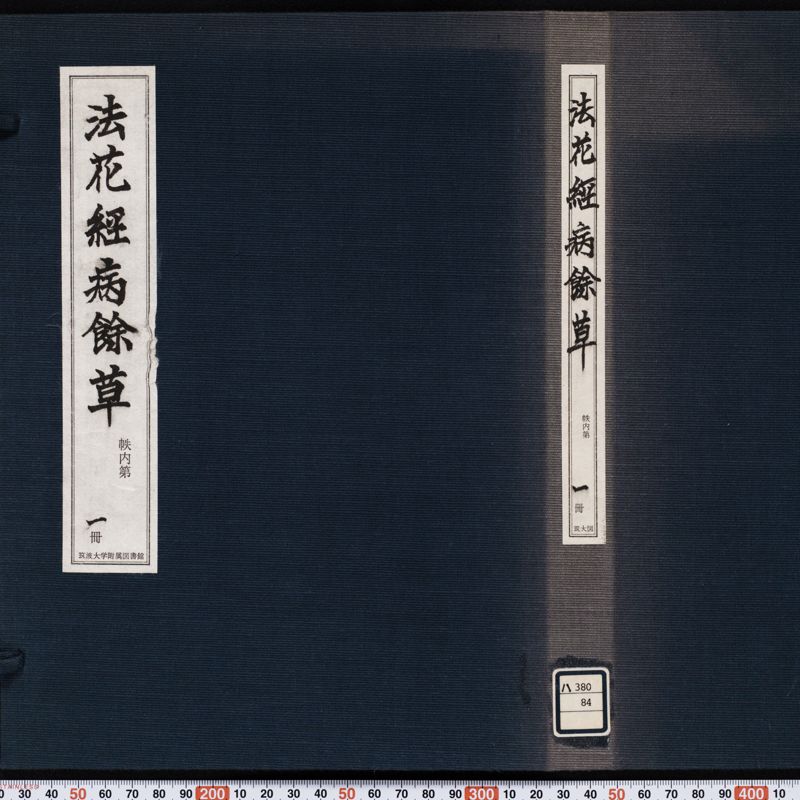 法花経病餘草
帙内第
一
冊
筑波大学附属図書館
法花経病餘草
帙内第
一
冊
筑大図
ハ 380
84
50 60 70 80 90 200 10 20 30 40 50 60 70 80 90 300 10 20 30 40 50 60 70 80 90 400 10